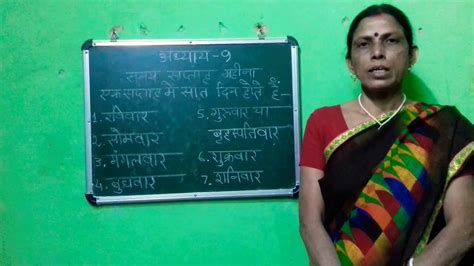 अध्याय-9
समय सप्ताह महीना
एक सप्ताह में सात दिन होते हैं-
1. रविवार
2. सोमवार
3. मंगलवार
4. बुधवार
5. गुरुवार या
बृहस्पतिवार
6. शुक्रवार
7. शनिवार